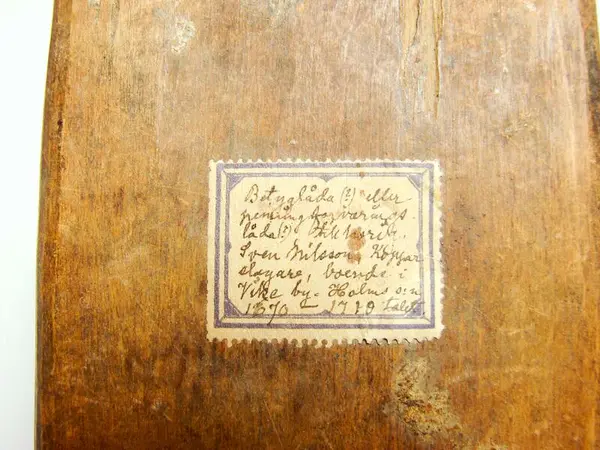 Betyglåda (?) eller
penningförvarings-
låda (?).
Sven Nilsson, Koppar
slagare, boende i
Vike by. Holms s:n
1670 — 1710 talet